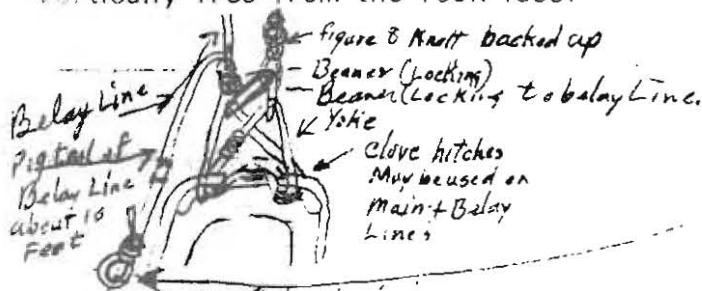 free from the rock face.
figure 8 Knott backed up
Beaner (Locking)
Beaner (Locking to belay Line.
Yoke
Clove hitches
May be used on
Main + Belay
Lines
Belay Line
Pigtail of
Belay Line
about 10
Feet